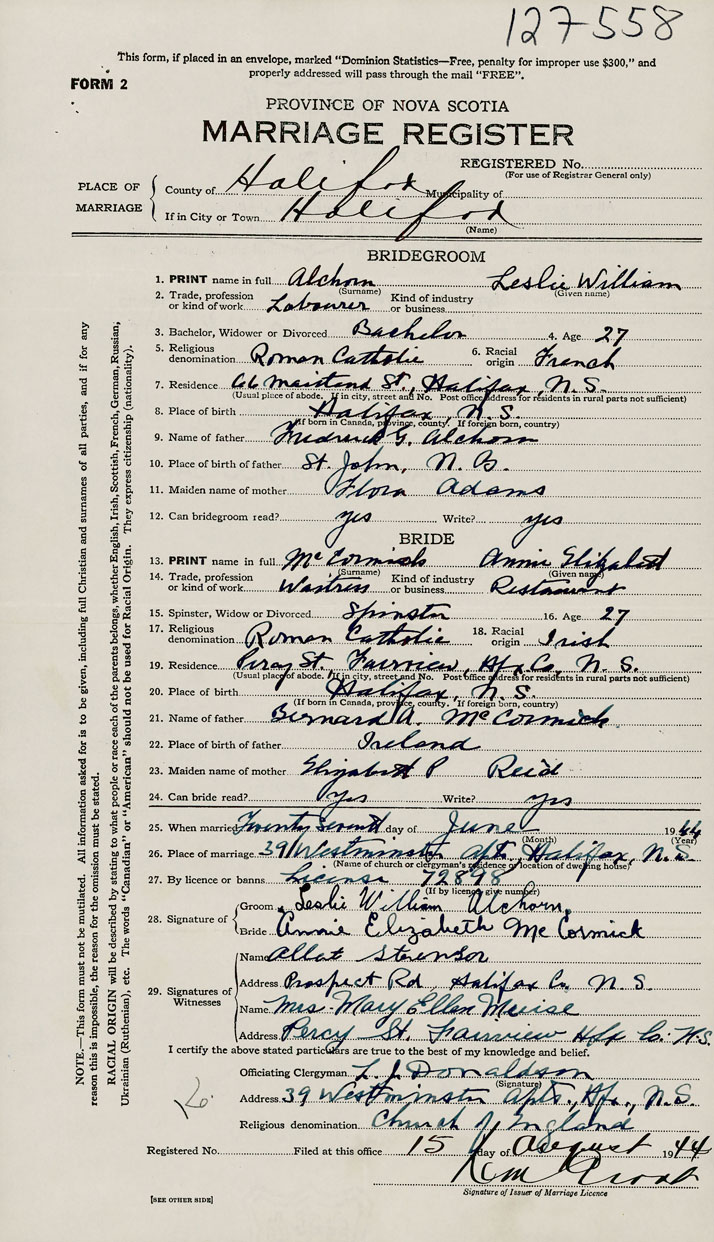 127-558
This form, if placed in an envelope, marked "Dominion Statistics—Free, penalty for improper use $300," and
properly addressed will pass through the mail "FREE".
FORM 2
PROVINCE OF NOVA SCOTIA
MARRIAGE REGISTER
REGISTERED No.
(For use of Registrar General only)
PLACE OF MARRIAGE
County of Halifax Municipality of
If in City or Town Halifax
(Name)
BRIDEGROOM
1. PRINT name in full Alchorn Leslie William
(Surname) (Given name)
2. Trade, profession or kind of work Labourer Kind of industry or business
3. Bachelor, Widower or Divorced Bachelor 4. Age 27
5. Religious denomination Roman Catholic 6. Racial origin French
7. Residence 66 Maitland St., Halifax, N.S.
(Usual place of abode. If in city, street and No. Post office address for residents in rural parts not sufficient)
8. Place of birth Halifax, N.S.
(If born in Canada, province, county. If foreign born, country)
9. Name of father Fredrick G. Alchorn
10. Place of birth of father St. John, N.B.
11. Maiden name of mother Flora Adams
12. Can bridegroom read? yes Write? yes
BRIDE
13. PRINT name in full McCormick Annie Elizabeth
(Surname) (Given name)
14. Trade, profession or kind of work Waitress Kind of industry or business Restaurant
15. Spinster, Widow or Divorced Spinster 16. Age 27
17. Religious denomination Roman Catholic 18. Racial origin Irish
19. Residence St., Fairview, Hfx Co., N.S.
(Usual place of abode. If in city, street and No. Post office address for residents in rural parts not sufficient)
20. Place of birth Halifax, N.S.
(If born in Canada, province, county. If foreign born, country)
21. Name of father Bernard A. McCormick
22. Place of birth of father Ireland
23. Maiden name of mother Elizabeth P Reid
24. Can bride read? yes Write? yes
25. When married Twenty Seventh day of June 1944
(Month) (Year)
26. Place of marriage 39 Westminster Apts. Halifax, N.S.
(Name of church or clergyman's residence or location of dwelling house)
27. By licence or banns License 72898
(If by licence give number)
28. Signature of
Groom Leslie William Alchorn
Bride Annie Elizabeth McCormick
29. Signatures of Witnesses
Name Stevenson
Address Prospect Rd, Halifax Co. N.S.
Name Mrs. Mary Ellen Meuise
Address Percy St. Fairview Hfx Co. N.S.
I certify the above stated particulars are true to the best of my knowledge and belief.
Officiating Clergyman L. J. Donaldson
(Signature)
Address 39 Westminster Apts., Hfx., N.S.
Religious denomination Church of England
Registered No. Filed at this office 15 day of August 1944
Signature of Issuer of Marriage Licence
[SEE OTHER SIDE]
NOTE.—This form must not be mutilated. All information asked for is to be given, including full Christian and surnames of all parties, and if for any
reason this is impossible, the reason for the omission must be stated.
RACIAL ORIGIN will be described by stating to what people or race each of the parents belongs, whether English, Irish, Scottish, French, German, Russian,
Ukrainian (Ruthenian), etc. The words "Canadian" or "American" should not be used for Racial Origin. They express citizenship (nationality).